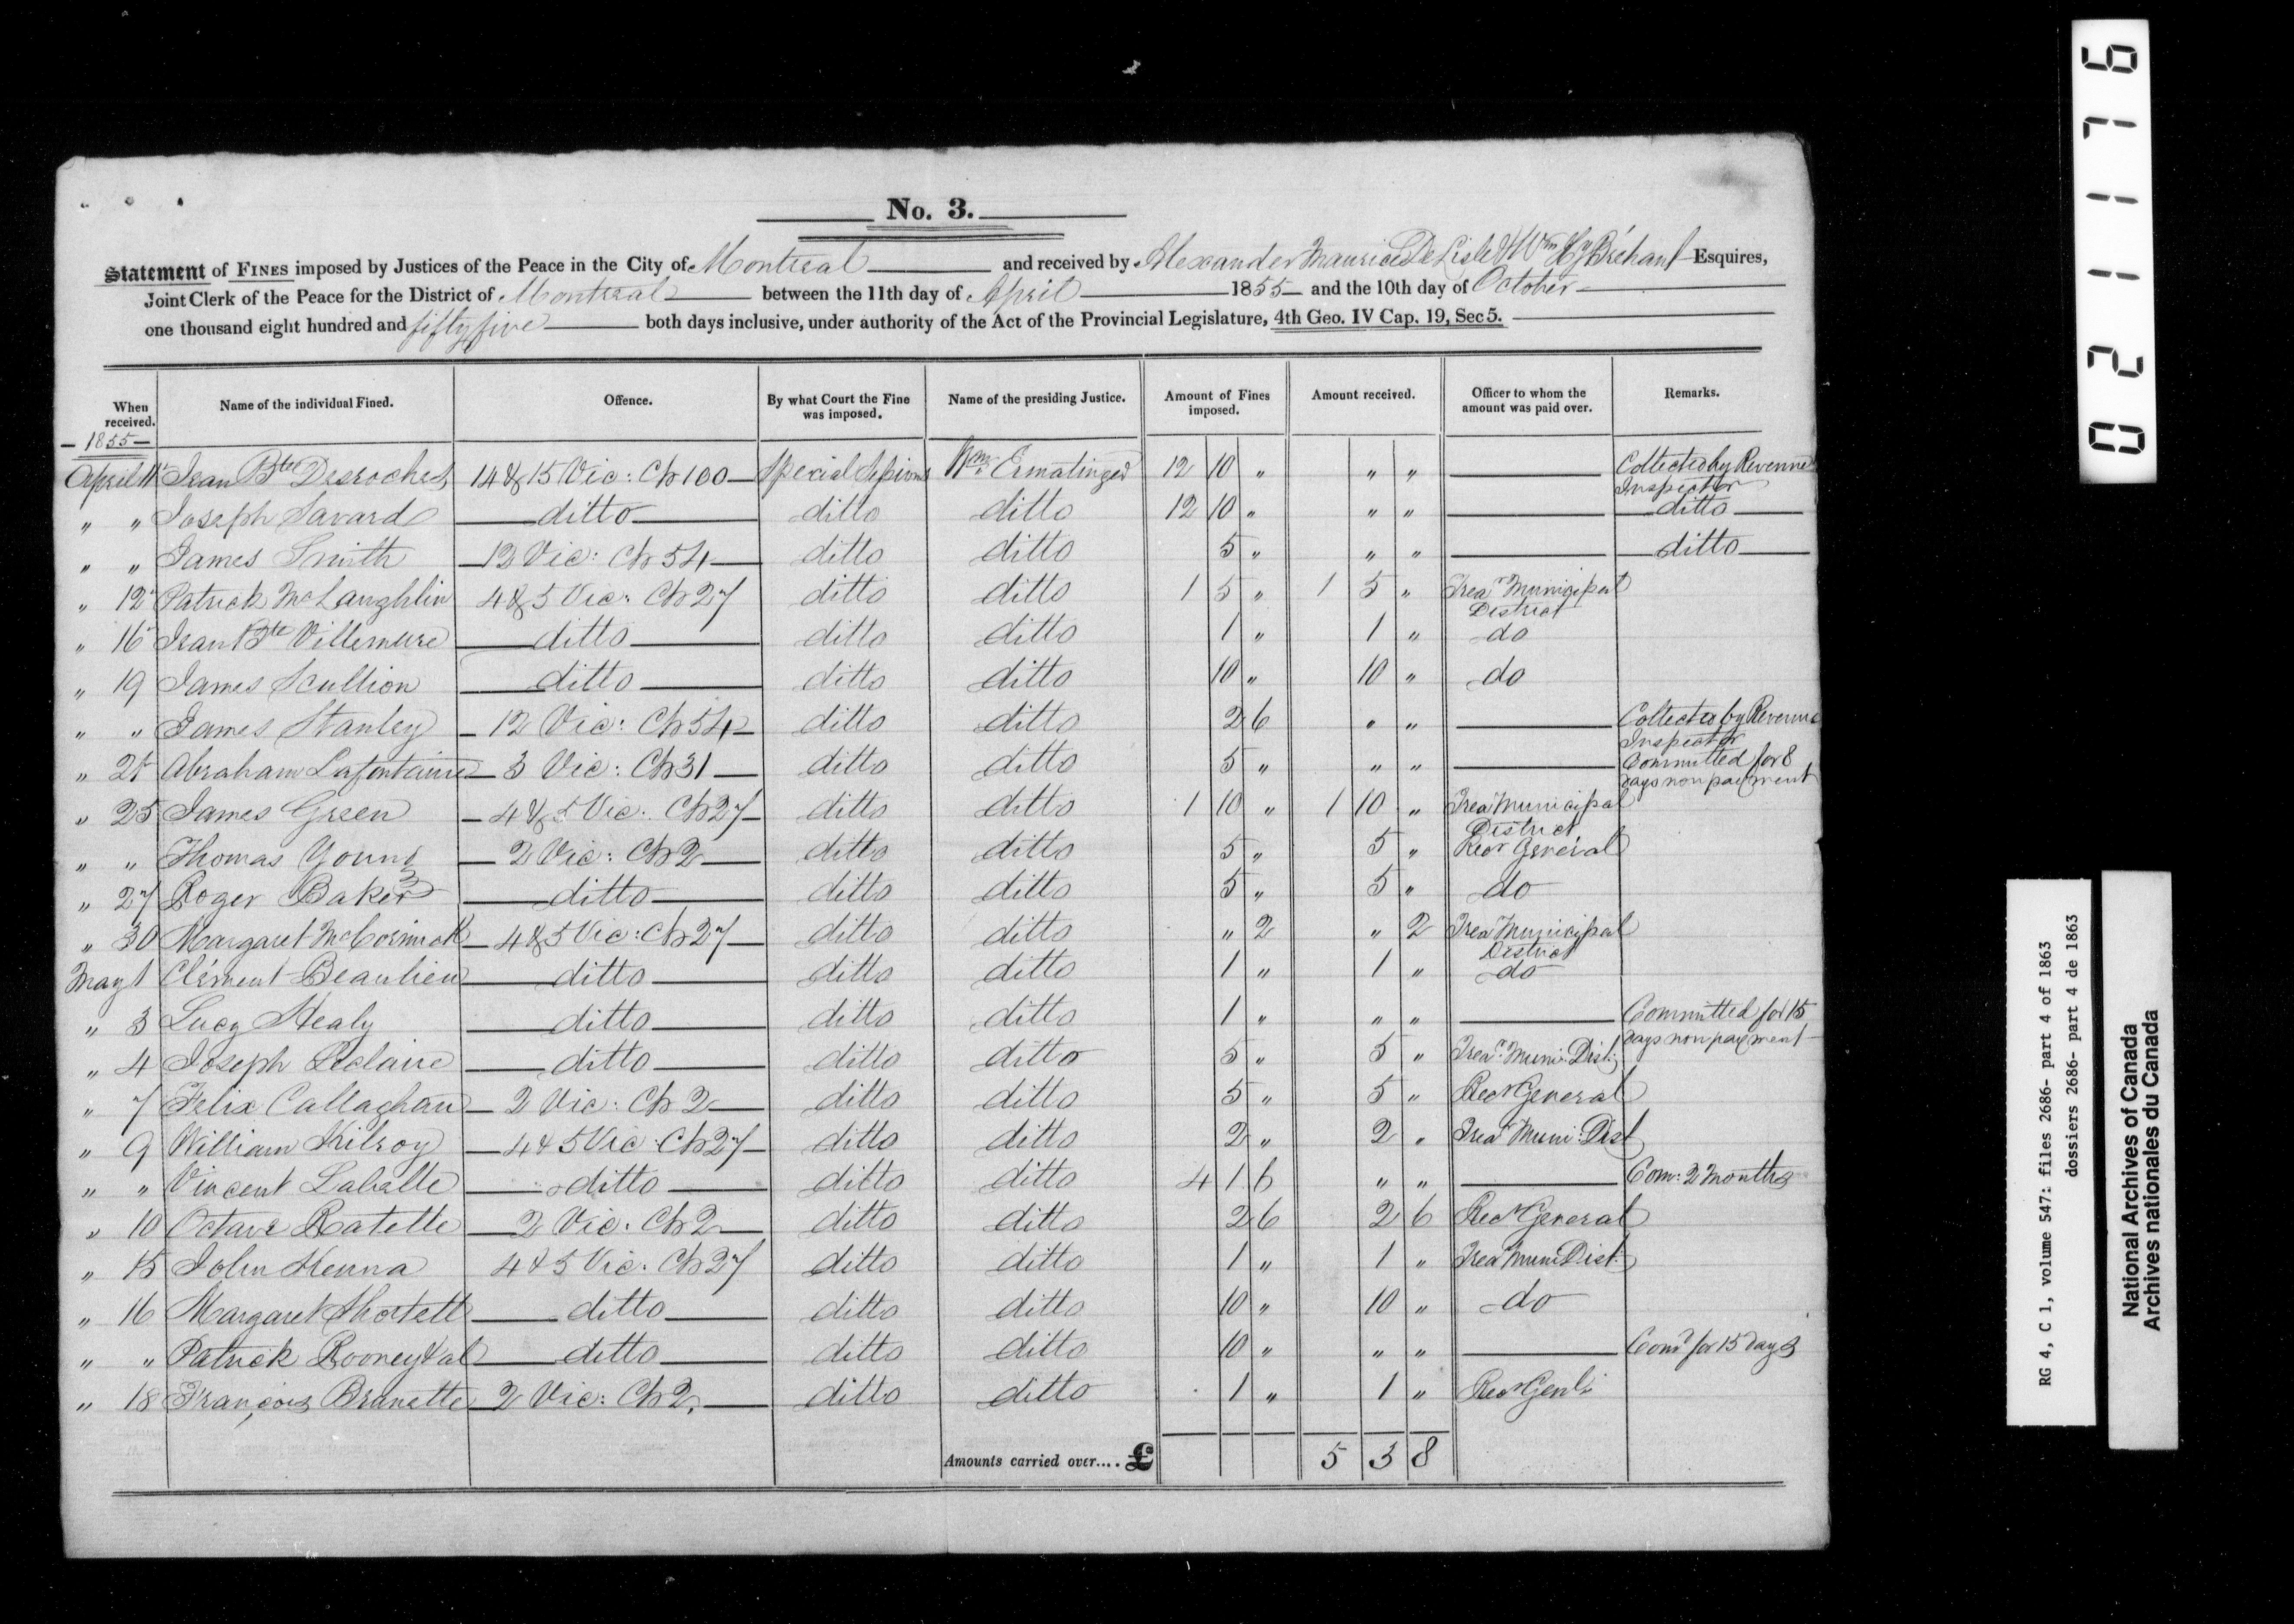 No. 3.
Statement of FINES imposed by Justices of the Peace in the City of Montreal and received by Alexander Maurice DeLisle & Wm Hy Bréhaut Esquires,
Joint Clerk of the Peace for the District of Montreal between the 11th day of April 1855 and the 10th day of October
one thousand eight hundred and fifty five both days inclusive, under authority of the Act of the Provincial Legislature, 4th Geo. IV Cap. 19, Sec 5.
When received. Name of the individual Fined. Offence. By what Court the Fine was imposed. Name of the presiding Justice. Amount of Fines imposed. Amount received. Officer to whom the amount was paid over. Remarks.
1855
April 11 Jean Bte Desroches 14 & 15 Vic: Ch 100 Special Sessions Wm Ermatinger 12 10 " " " Collected by Revenue Inspector
" " Joseph Savard ditto ditto ditto 12 10 " " " ditto
" " James Smith 12 Vic: Ch 54 ditto ditto 5 " " " ditto
" 12 Patrick McLaughlin 4 & 5 Vic: Ch 27 ditto ditto 1 5 " 1 5 " Trear Municipal District
" 16 Jean Bte Villemure ditto ditto ditto 1 " 1 " do
" 19 James Scullion ditto ditto ditto 10 " 10 " do
" " James Stanley 12 Vic: Ch 54 ditto ditto 2 6 " " Collected by Revenue Inspector
" 21 Abraham Lafontaine 3 Vic: Ch 31 ditto ditto 5 " " " Committed for 8 days non payment
" 25 James Green 4 & 5 Vic: Ch 27 ditto ditto 1 10 " 1 10 " Trear Municipal District
" " Thomas Young 2 Vic: Ch 2 ditto ditto 5 " 5 " Recr General
" 27 Roger Baker ditto ditto ditto 5 " 5 " do
" 30 Margaret McCormick 4 & 5 Vic: Ch 27 ditto ditto " 2 " 2 Trear Municipal District
May 1 Clément Beaulieu ditto ditto ditto 1 " 1 " do
" 3 Lucy Healy ditto ditto ditto 1 " " " Committed for 15 days non payment
" 4 Joseph Leclaire ditto ditto ditto 5 " 5 " Trear Muni: Dist:
" 7 Felix Callaghan 2 Vic: Ch 2 ditto ditto 5 " 5 " Recr General
" 9 William Kilroy 4 & 5 Vic: Ch 27 ditto ditto 2 " 2 " Trear Muni: Dist
" " Vincent Laballe ditto ditto ditto 4 1 6 " " Com: 2 months
" 10 Octave Ratelle 2 Vic: Ch 2 ditto ditto 2 6 2 6 Recr General
" 15 John Kenna 4 & 5 Vic: Ch 27 ditto ditto 1 " 1 " Trear Muni Dist:
" 16 Margaret Shortell ditto ditto ditto 10 " 10 " do
" " Patrick Rooney & al ditto ditto ditto 10 " " " Comd for 15 days
" 18 François Brunette 2 Vic: Ch 2 ditto ditto 1 " 1 " Recr Genl:
Amounts carried over.... £ 5 3 8
021176
RG 4, C 1, volume 547: files 2686- part 4 of 1863
dossiers 2686- part 4 de 1863
National Archives of Canada
Archives nationales du Canada